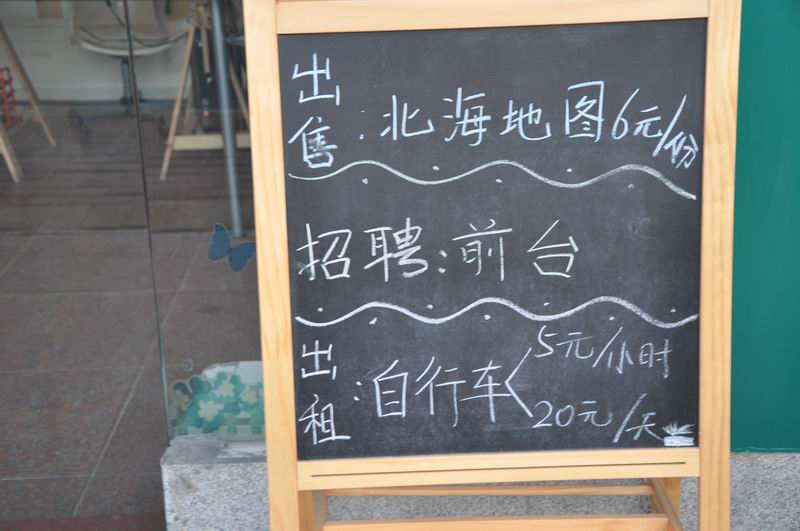 出售:北海地图6元/份
招聘:前台
出租:自行车<5元/小时
20元/天